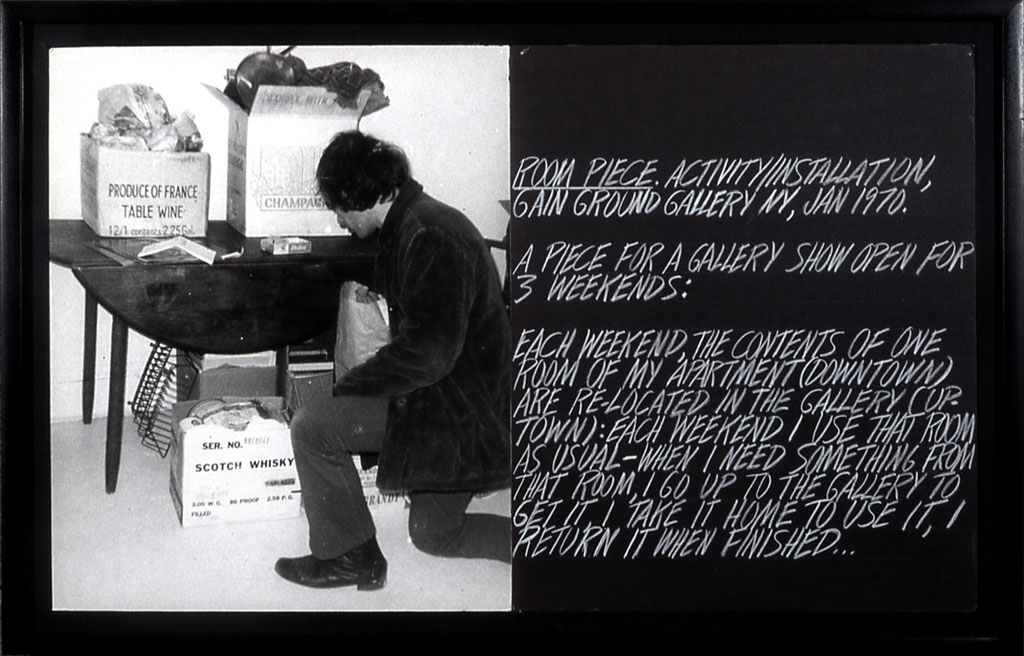 PRODUCE OF FRANCE
TABLE WINE
12/1 contents 2.25 Gal.
CHAMPAG
SER. NO.
SCOTCH WHISKY
86 PROOF
FILLED
BRANDY
ROOM PIECE. ACTIVITY/INSTALLATION,
GAIN GROUND GALLERY NY, JAN 1970.
A PIECE FOR A GALLERY SHOW OPEN FOR
3 WEEKENDS:
EACH WEEKEND, THE CONTENTS OF ONE
ROOM OF MY APARTMENT (DOWNTOWN)
ARE RE-LOCATED IN THE GALLERY (UP-
TOWN): EACH WEEKEND I USE THAT ROOM
AS USUAL – WHEN I NEED SOMETHING FROM
THAT ROOM, I GO UP TO THE GALLERY TO
GET IT, I TAKE IT HOME TO USE IT, I
RETURN IT WHEN FINISHED...